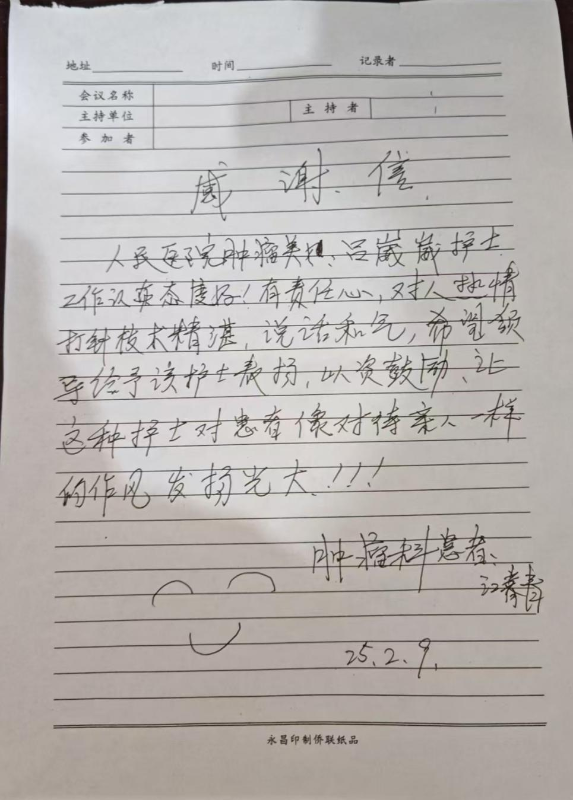 地址 时间 记录者
会议名称
主持单位 主持者
参加者
感谢信
人民医院肿瘤美女、吕崴崴护士
工作认真态度好！有责任心，对人热情
打针技术精湛，说话和气，希望领
导给予该护士表扬，以资鼓励、让
这种护士对患者像对待亲人一样
的作风发扬光大、！！！
肿瘤科患者、
25.2.9.
永昌印制侨联纸品